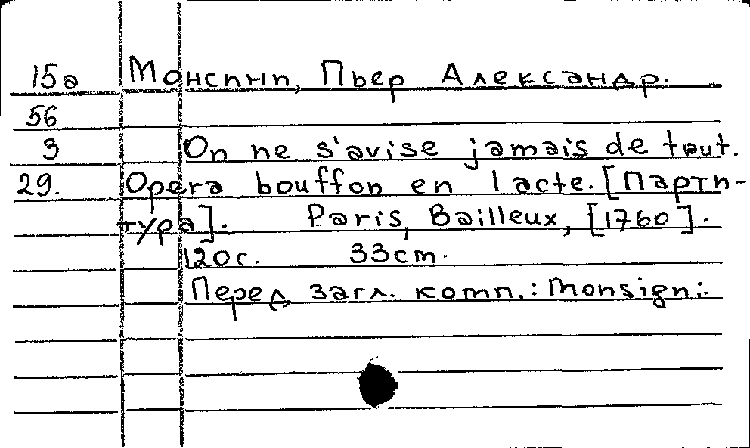 15а Монсиньи, Пьер Александр.
56
3 On ne s'avise jamais de tout.
29. Opera bouffon en 1 acte. [Парти-
тура]. Paris, Bailleux, [1760].
120с. 33cm.
Перед загл. комп.: Monsigni.